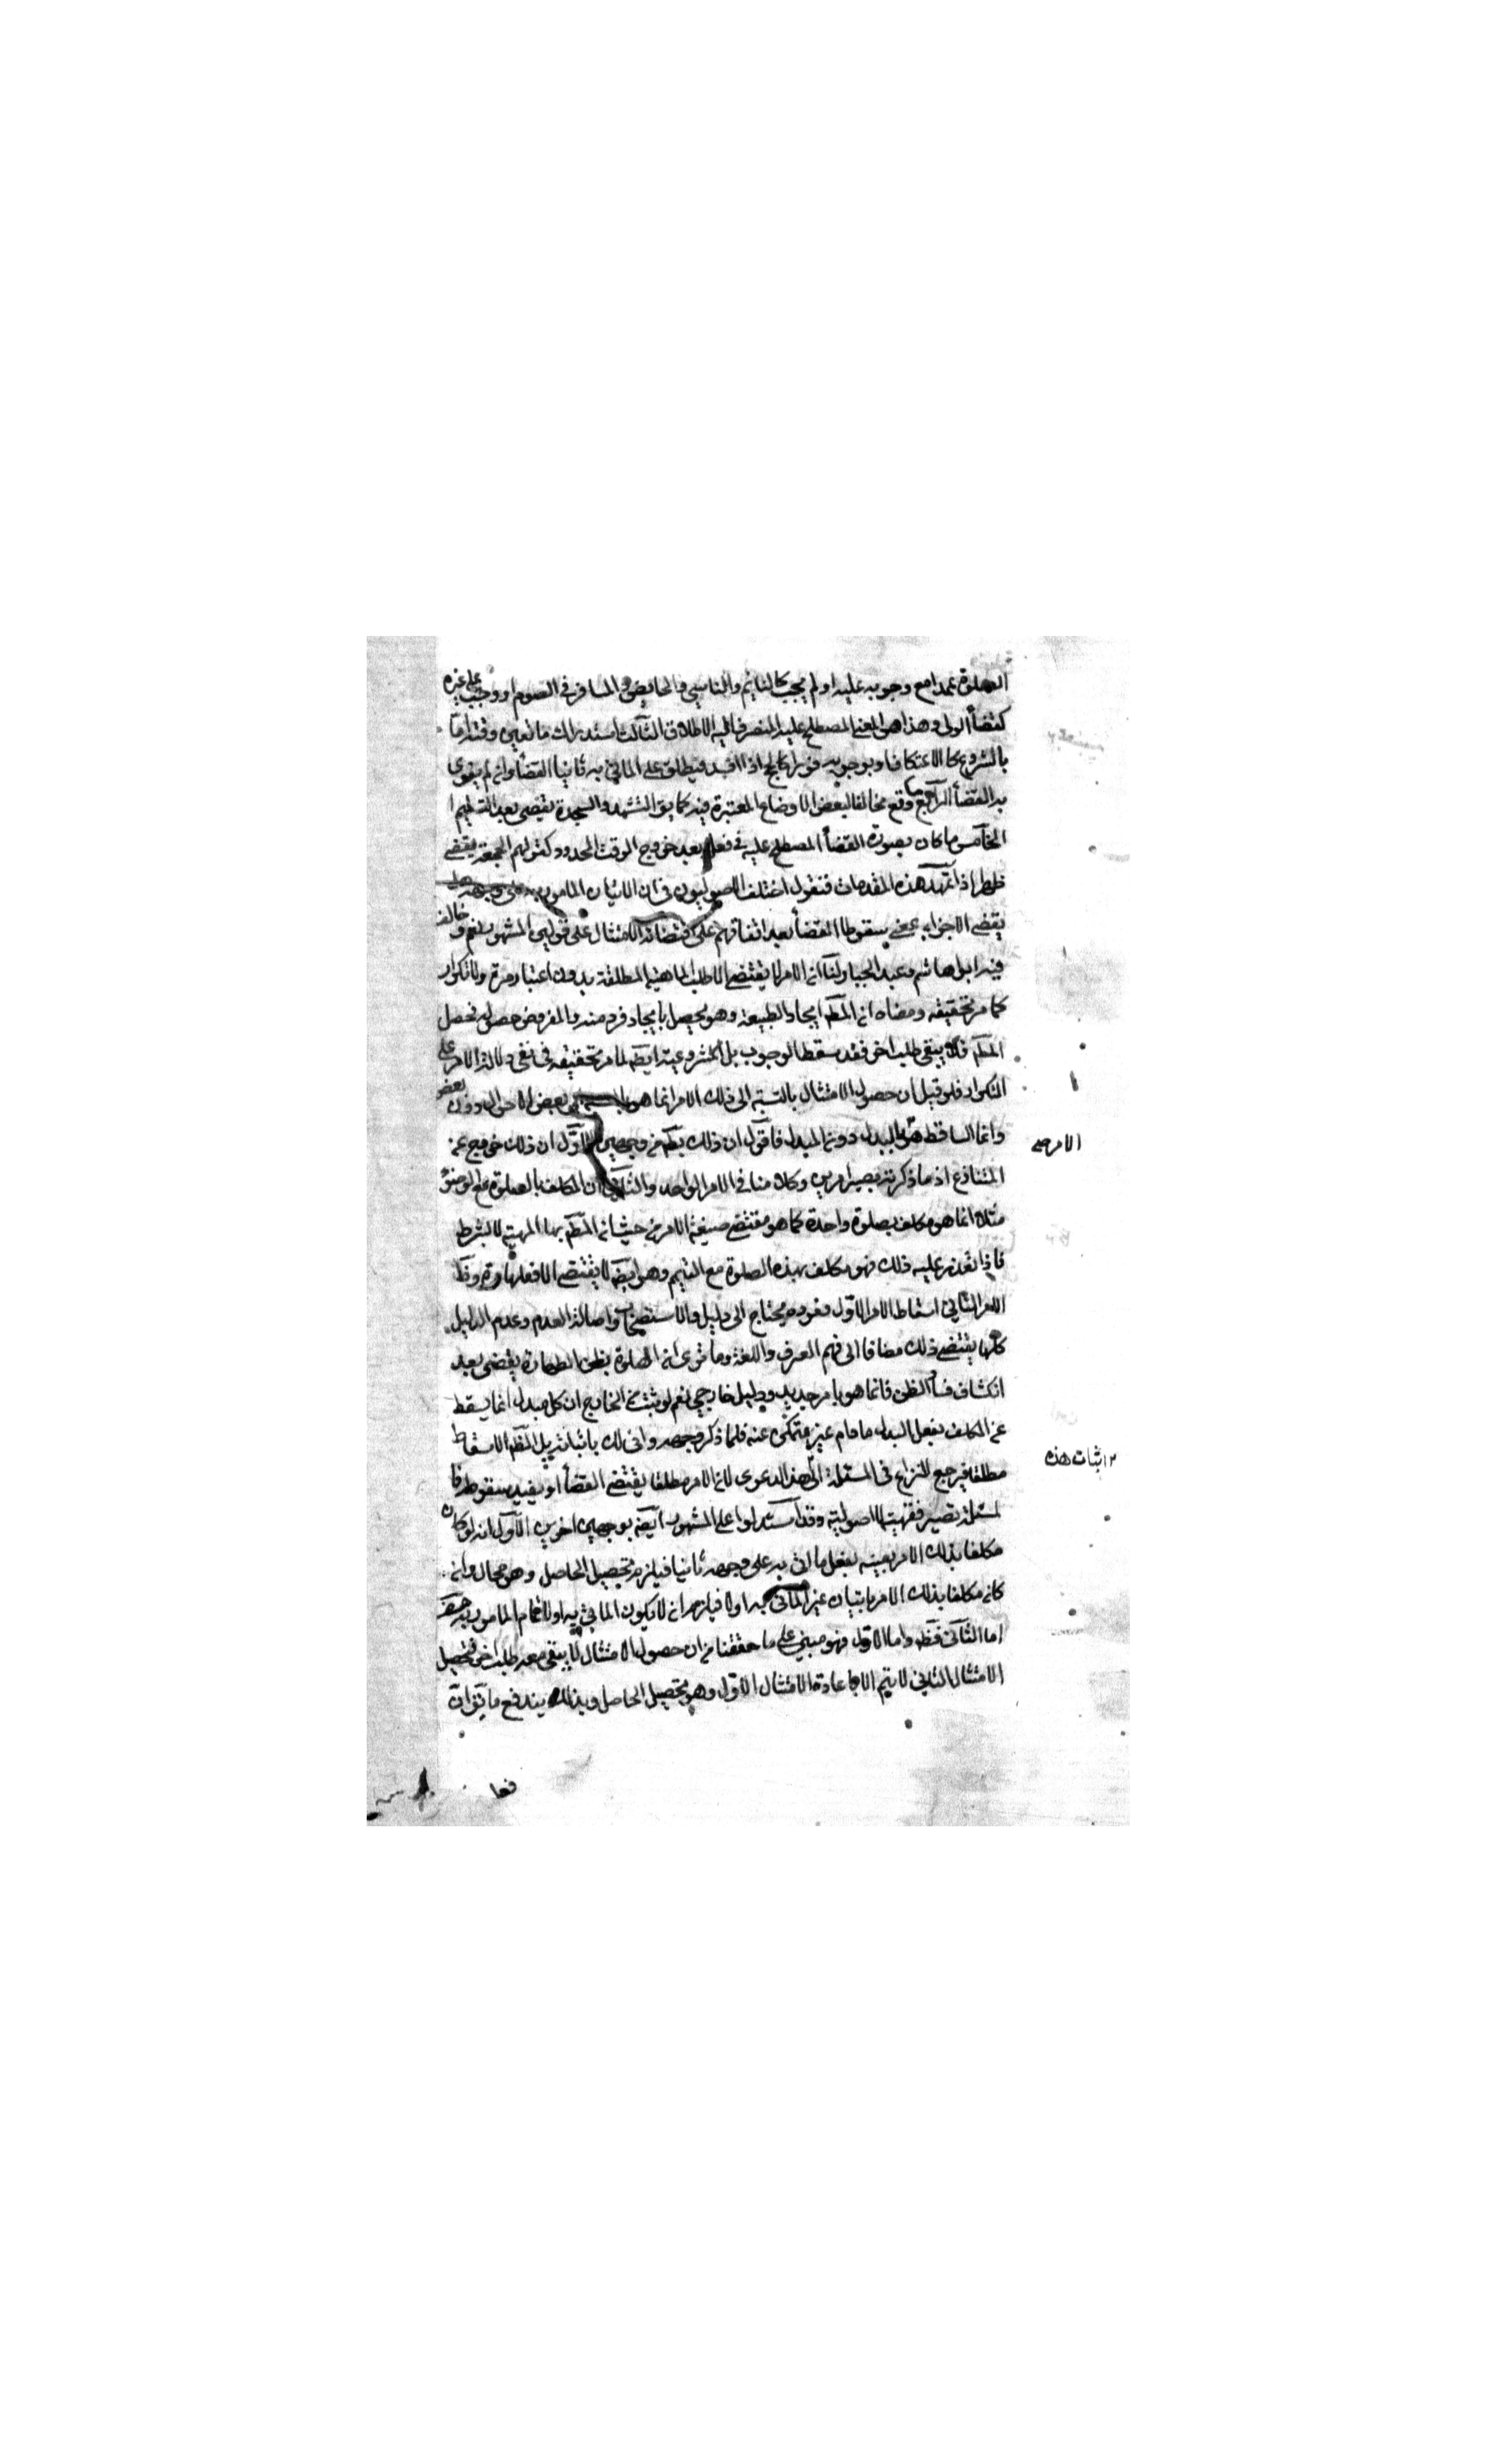 الصلوة عمدا مع وجوبه عليه او لم يجب كالنايم والناسي والحايض والمسافر في الصوم او وجب على غيره
كقضاء الولى وهذا هو المعنى المصطلح عليه المنصرف اليه الاطلاق الثالث استدراك ما تعين وقته اما
بالشروع كالاعتكاف او بوجوبه فورا كالحج اذا افسد فيطلق على الماتي به ثانيا القضاء وان لم ينوى
به القضاء الرابع ما وقع مخالفا لبعض الاوضاع المعتبرة فيه كما يق التشهد والسجدة يقضى بعد التسليم
الخامس ما كان بصورة القضاء المصطلح عليه في فعله بعد خروج الوقت المحدود كقولهم الجمعة يقضى
ظهرا اذا تمهد هذه المقدمات فنقول اختلف الاصوليون في ان الاتيان المامور به على وجهه هل
يقتضى الاجزاء بمعنى سقوط القضاء بعد اتفاقهم على اقتضائه الامتثال على قولين المشهور نعم وخالف
فيه ابو هاشم وعبد الجبار لنا ان الامر لا يقتضى الا طلب الماهية المطلقة بدون اعتبار مرة ولا تكرار
كما مر تحقيقه ومعناه ان المطم ايجاد الطبيعة وهو يحصل بايجاد فرد منه والمفروض حصوله فحصل
المطم فلا يبقى طلب اخر فقد سقط الوجوب بل المشروعية ايضم لما مر تحقيقه في نفى دلالة الامر على
التكرار فلو قيل ان حصول الامتثال بالنسبة الى ذلك الامر انما هو في بعض الاحوال دون بعض
وانما الساقط هو البدل دون المبدل فاقول ان ذلك بطم من وجهين الاول ان ذلك خروج عن
المتنازع اذ ما ذكرته يصير امرين وكلامنا في الامر الواحد والثاني ان المكلف بالصلوة مع الوضوء
مثلا انما هو مكلف بصلوة واحدة كما هو مقتضى صيغة الامر من حيث ان المطم بها المهية لا بشرط
فاذا تعذر عليه ذلك فهو مكلف بهذه الصلوة مع التيمم وهو ايضم لا يقتضى الا فعلها مرة وظ
الامر الثاني اسقاط الامر الاول فعوده يحتاج الى دليل والاستصحاب واصالة العدم وعدم الدليل
كلها يقتضى ذلك مضافا الى فهم العرف واللغة وما ترى ان الصلوة بظن الطهارة يقضى بعد
انكشاف فساد الظن فانما هو بامر جديد ودليل خارجي نعم لو ثبت من الخارج ان كل مبدل انما يسقط
عن المكلف بفعل البدل ما دام غير متمكن عنه فلما ذكر وجه وانى لك باثباته بل الظم الاسقاط
مطلقا فيرجع النزاع في المسئلة الى هذه الدعوى لا ان الامر مطلقا يقتضى القضاء او يفيد سقوطه فا
لمسئلة تصير فقهية لا اصولية وقد استدلوا على المشهور ايضم بوجهين اخرين الاول انه لو كان
مكلفا بذلك الامر بعينه بفعل ما اتى به على وجهه ثانيا فيلزم تحصيل الحاصل وهو محال وان
كان مكلفا بذلك الامر باتيان غير الماتى به اولا فيلزم ان لا يكون الماتى به اولا تمام المامور به هف
اما الثاني فظم واما الاول فهو مبني على ما حققنا من ان حصول الامتثال لا يبقى معه طلب اخر فتحصيل
الامتثال الثاني لا يتم الا باعادة الامتثال الاول وهو تحصيل الحاصل وبذلك يندفع ما يق ان
الامر صح
اثبات هذه